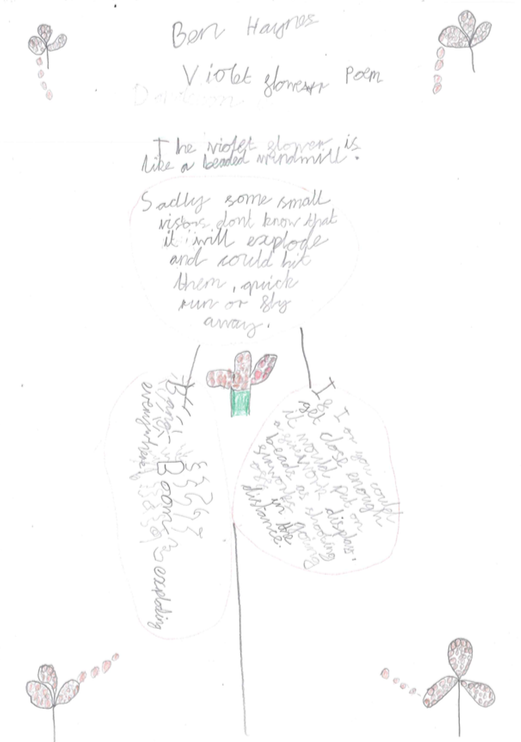 Ben Haynes
Violet flower Poem
The violet flower is
like a beaded windmill.
Sadly some small
vistors dont know that
it will explode
and could hit
them, quick
run or fly
away.
Bang
Boom
exploding
everywhere
If I or you could
get close enough
it would put on
a firework display.
beads as shooting
fireworks flowing
off in the
distance.